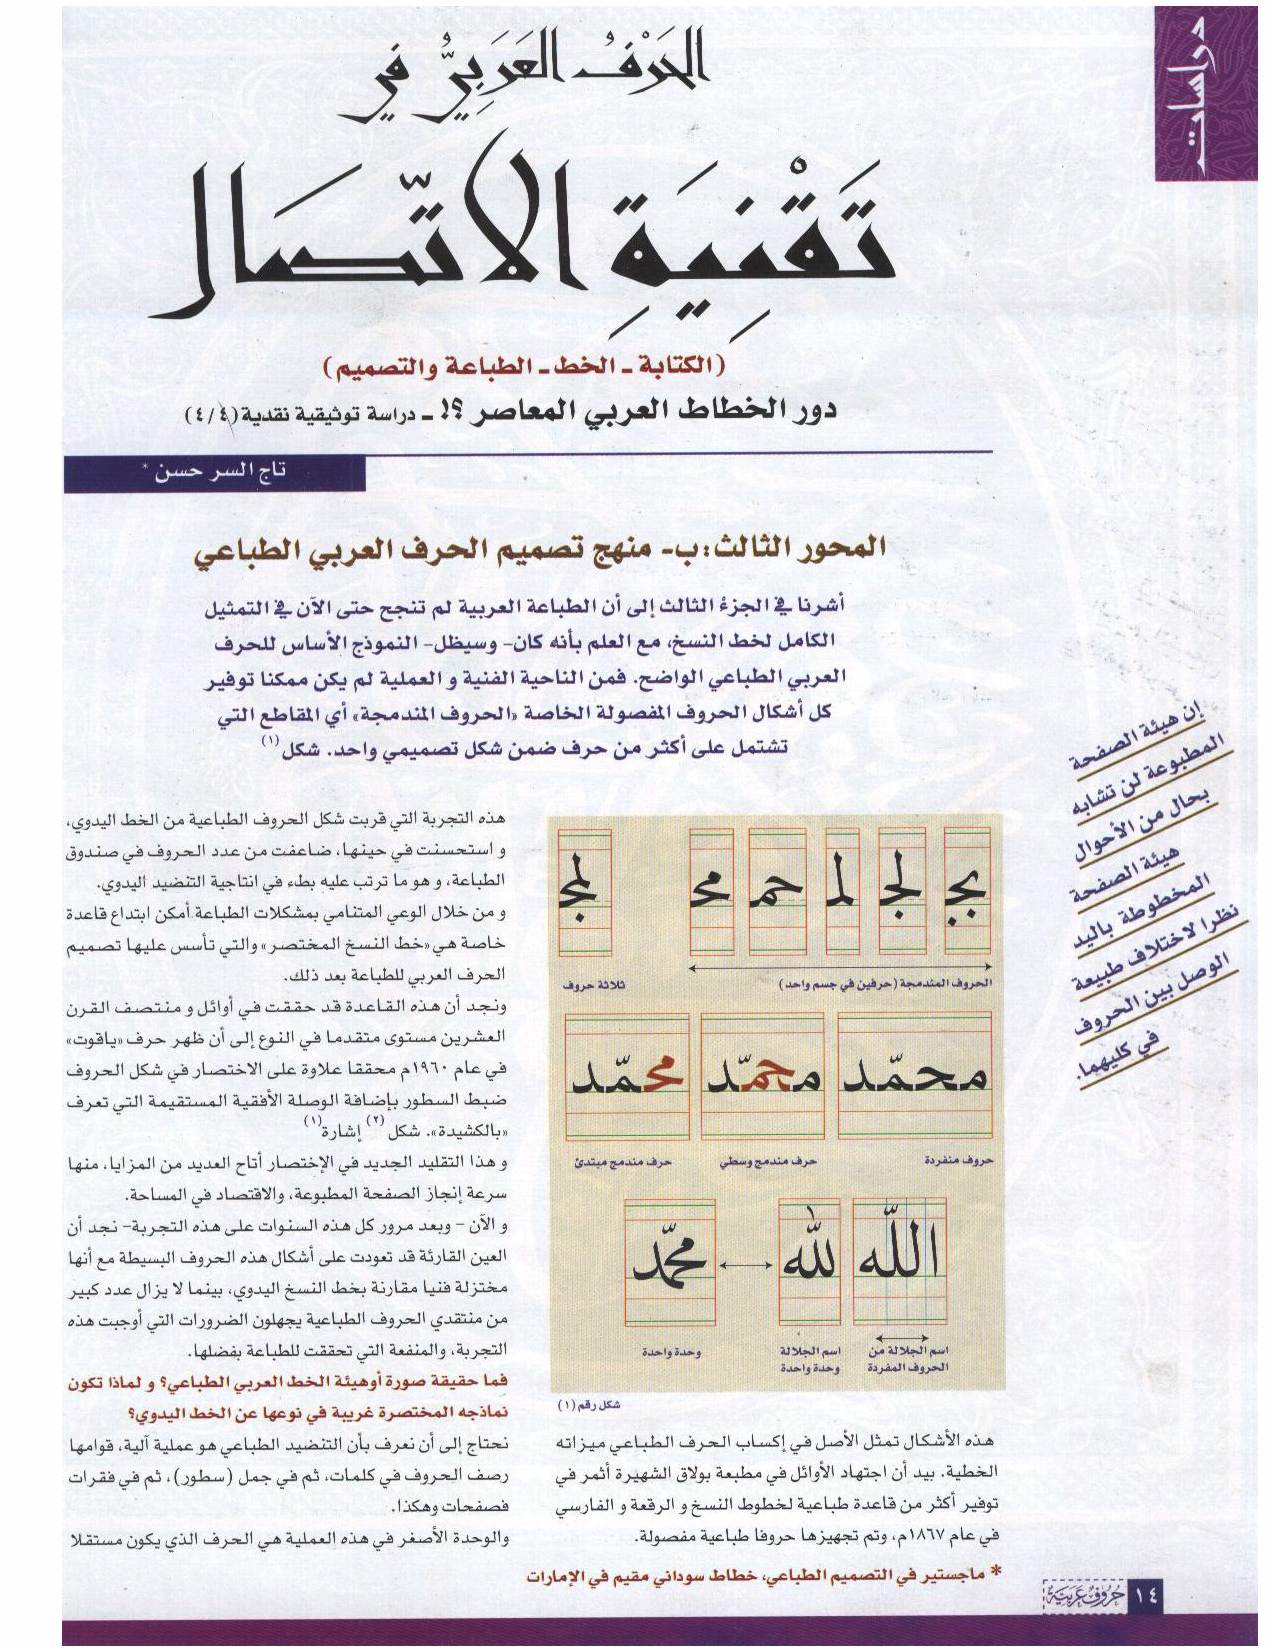 دراسات
الحَرْفُ العَرَبِيُّ في
تَقْنِيَةِ الاتّصَال
(الكتابة ـ الخط ـ الطباعة والتصميم)
دور الخطاط العربي المعاصر ؟! ـ دراسة توثيقية نقدية (٤/٤)
تاج السر حسن *
المحور الثالث: ب- منهج تصميم الحرف العربي الطباعي
أشرنا في الجزء الثالث إلى أن الطباعة العربية لم تنجح حتى الآن في التمثيل
الكامل لخط النسخ، مع العلم بأنه كان- وسيظل- النموذج الأساس للحرف
العربي الطباعي الواضح. فمن الناحية الفنية و العملية لم يكن ممكنا توفير
كل أشكال الحروف المفصولة الخاصة «الحروف المندمجة» أي المقاطع التي
تشتمل على أكثر من حرف ضمن شكل تصميمي واحد. شكل (١)
إن هيئة الصفحة
المطبوعة لن تشابه
بحال من الأحوال
هيئة الصفحة
المخطوطة باليد
نظرا لاختلاف طبيعة
الوصل بين الحروف
في كليهما.
بج لج لم حم مح لمج
الحروف المندمجة (حرفين في جسم واحد)
ثلاثة حروف
محمّد محمّد محمّد
حروف منفردة
حرف مندمج وسطي
حرف مندمج مبتدئ
اللّه للّه محمّد
اسم الجلالة من
الحروف المفردة
اسم الجلالة
وحدة واحدة
وحدة واحدة
شكل رقم (١)
هذه الأشكال تمثل الأصل في إكساب الحرف الطباعي ميزاته
الخطية. بيد أن اجتهاد الأوائل في مطبعة بولاق الشهيرة أثمر في
توفير أكثر من قاعدة طباعية لخطوط النسخ و الرقعة و الفارسي
في عام ١٨٦٧م، وتم تجهيزها حروفا طباعية مفصولة.
هذه التجربة التي قربت شكل الحروف الطباعية من الخط اليدوي،
و استحسنت في حينها، ضاعفت من عدد الحروف في صندوق
الطباعة، و هو ما ترتب عليه بطء في انتاجية التنضيد اليدوي.
و من خلال الوعي المتنامي بمشكلات الطباعة أمكن ابتداع قاعدة
خاصة هي «خط النسخ المختصر» والتي تأسس عليها تصميم
الحرف العربي للطباعة بعد ذلك.
ونجد أن هذه القاعدة قد حققت في أوائل و منتصف القرن
العشرين مستوى متقدما في النوع إلى أن ظهر حرف «ياقوت»
في عام ١٩٦٠م محققا علاوة على الاختصار في شكل الحروف
ضبط السطور بإضافة الوصلة الأفقية المستقيمة التي تعرف
«بالكشيدة». شكل (٢) إشارة (١)
و هذا التقليد الجديد في الإختصار أتاح العديد من المزايا، منها
سرعة إنجاز الصفحة المطبوعة، والاقتصاد في المساحة.
و الآن - وبعد مرور كل هذه السنوات على هذه التجربة- نجد أن
العين القارئة قد تعودت على أشكال هذه الحروف البسيطة مع أنها
مختزلة فنيا مقارنة بخط النسخ اليدوي، بينما لا يزال عدد كبير
من منتقدي الحروف الطباعية يجهلون الضرورات التي أوجبت هذه
التجربة، والمنفعة التي تحققت للطباعة بفضلها.
فما حقيقة صورة أوهيئة الخط العربي الطباعي؟ و لماذا تكون
نماذجه المختصرة غريبة في نوعها عن الخط اليدوي؟
نحتاج إلى أن نعرف بأن التنضيد الطباعي هو عملية آلية، قوامها
رصف الحروف في كلمات، ثم في جمل (سطور)، ثم في فقرات
فصفحات وهكذا.
والوحدة الأصغر في هذه العملية هي الحرف الذي يكون مستقلا
* ماجستير في التصميم الطباعي، خطاط سوداني مقيم في الإمارات
حروف عربية ١٤